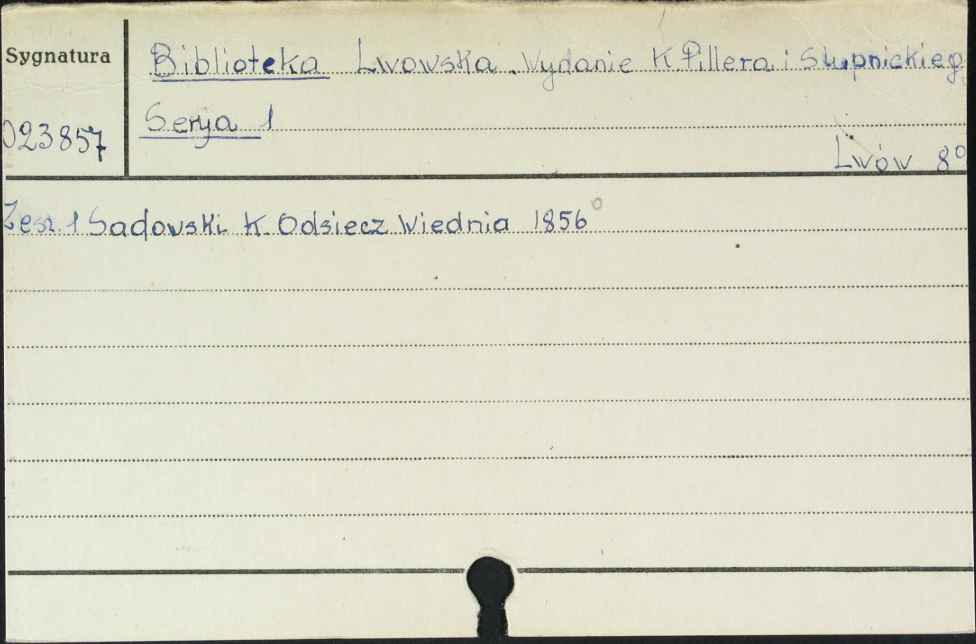 Sygnatura
Biblioteka Lwowska. Wydanie K. Pillera i Słupnickieg
023857
Serya 1
Lwów 8º
Zesz. 1 Sadowski K. Odsiecz Wiednia 1856